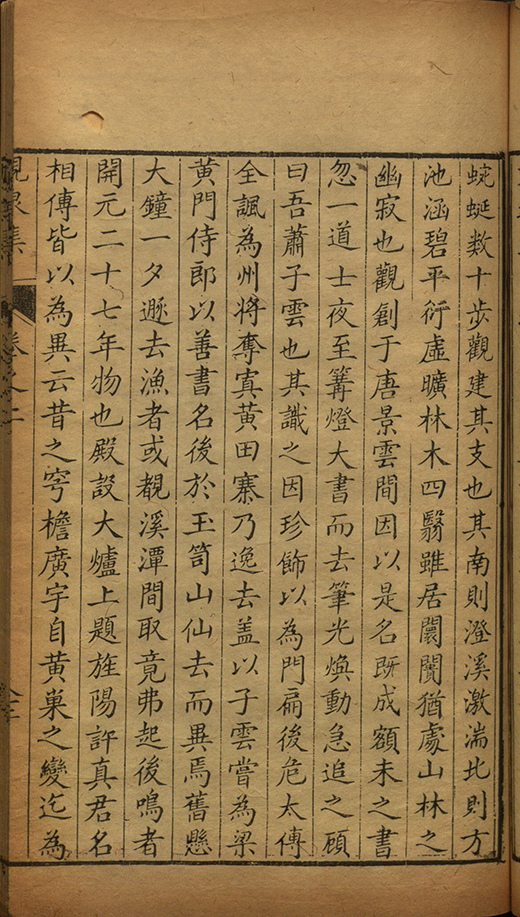 蜿蜒数十步觀建其支也其南則澄溪激湍北則方
池涵碧平衍虛曠林木四翳雖居闤闠猶處山林之
幽寂也觀創于唐景雲間因以是名既成額未之書
忽一道士夜至篝燈大書而去筆光煥動急追之顧
曰吾蕭子雲也其識之因珍飾以為門扁後危太傅
全諷為州將奪寘黄田寨乃逸去盖以子雲嘗為梁
黄門侍郎以善書名後於玉笥山仙去而異焉舊懸
大鐘一夕遯去漁者或覩溪潭間取竟弗起後鳴者
開元二十七年物也殿設大爐上題旌陽許真君名
相傳皆以為異云昔之穹檐廣宇自黄巢之變迄為
峴泉集 卷之二